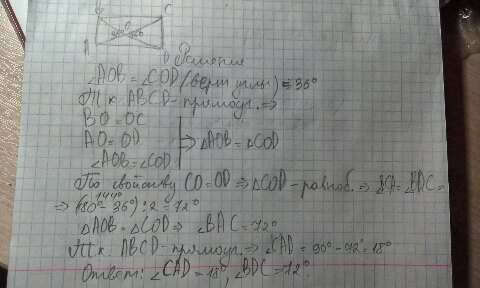 B C
O
36°
A D
Решение
∠AOB = ∠COD (верт углы) = 36°
Т.к. ABCD - прямоуг. ⇒
BO = OC
AO = OD ⇒ △AOB = △COD
∠AOB = ∠COD
По свойству CO = OD ⇒ △COD - равноб. ⇒ ∠BDC =
144°
⇒ (180° - 36°) : 2 = 72°
△AOB = △COD ⇒ ∠BAC = 72°
Т.к. ABCD - прямоуг. ⇒ ∠CAD = 90° - 72° = 18°
Ответ: ∠CAD = 18°, ∠BDC = 72°